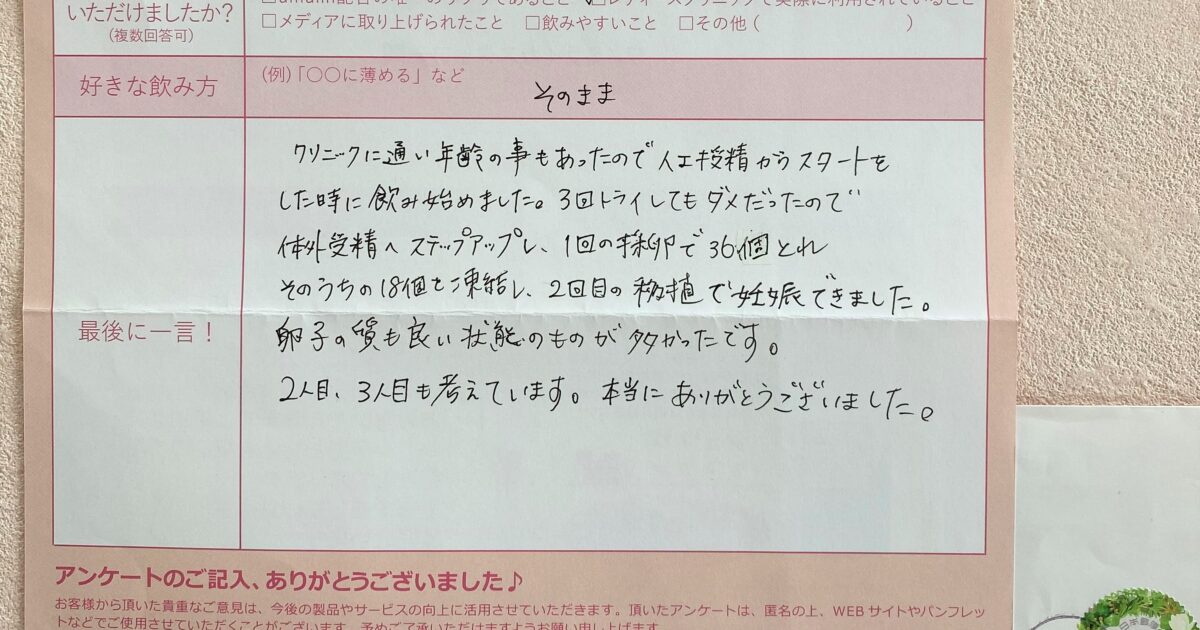 いただけましたか?
(複数回答可)
配合の唯一のサプリであること □レディースクリニックで実際に利用されていること
□メディアに取り上げられたこと □飲みやすいこと □その他 ( )
好きな飲み方
(例)「○○に薄める」など
そのまま
最後に一言!
クリニックに通い年齢の事もあったので人工授精からスタートを
した時に飲み始めました。3回トライしてもダメだったので
体外受精へステップアップし、1回の採卵で36個とれ
そのうちの18個を凍結し、2回目の移植で妊娠できました。
卵子の質も良い状態のものが多かったです。
2人目、3人目も考えています。本当にありがとうございました。
アンケートのご記入、ありがとうございました♪
お客様から頂いた貴重なご意見は、今後の製品やサービスの向上に活用させていただきます。頂いたアンケートは、匿名の上、WEBサイトやパンフレッ
トなどでご使用させていただくことがございます。予めご了承いただけますようお願い申し上げます。